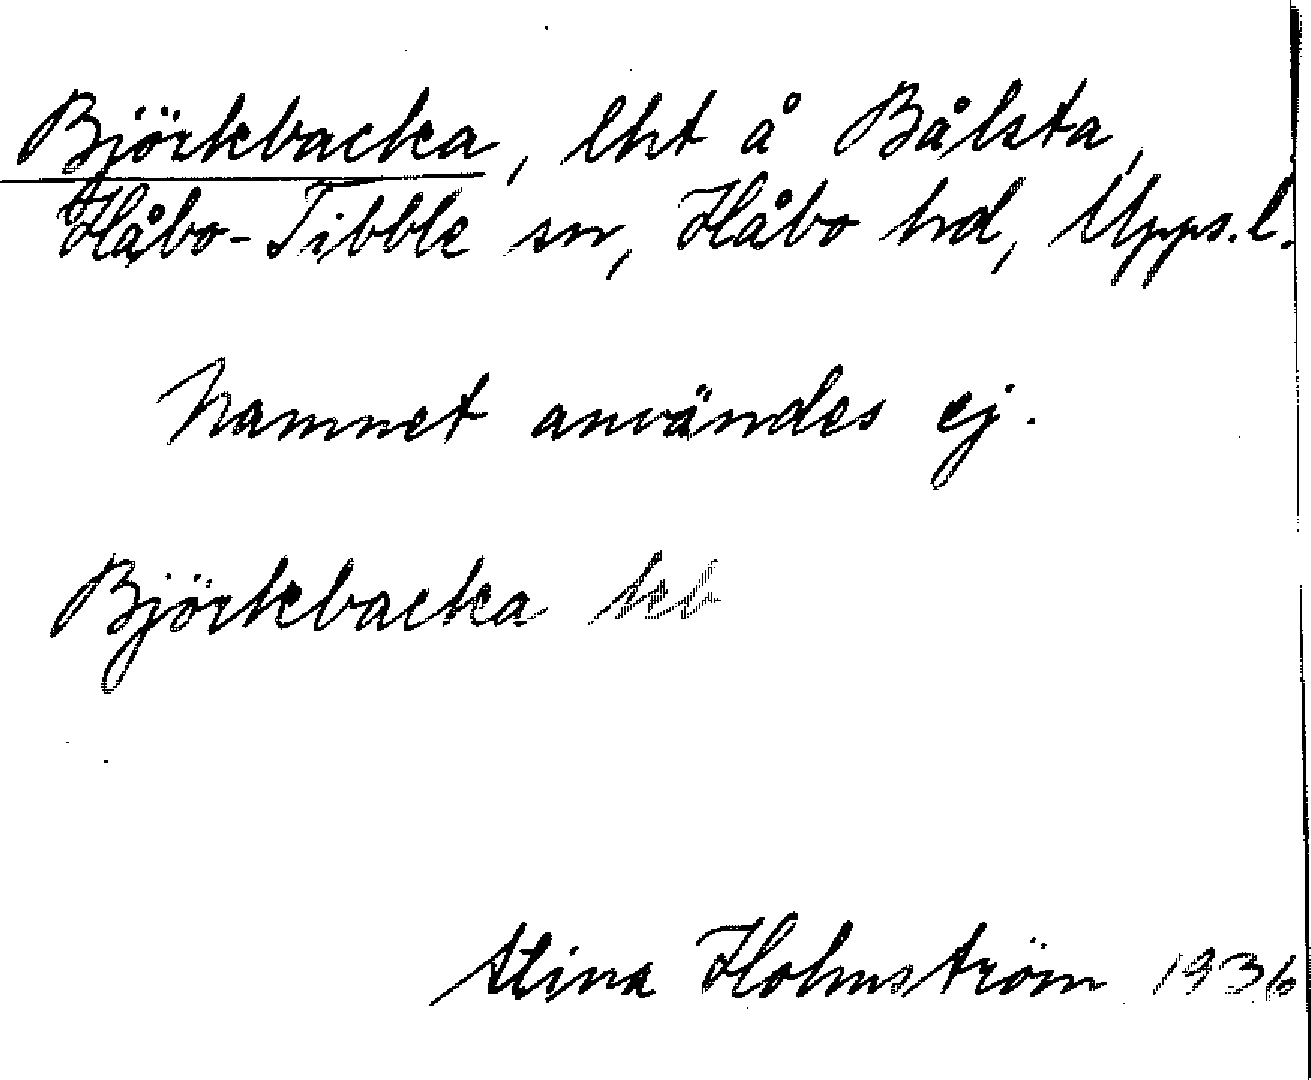 Björkbacka, lht å Bålsta,
Håbo-Tibble sn, Håbo hd, Upps.l.
Namnet användes ej.
Björkbacka
Stina Holmström 1936